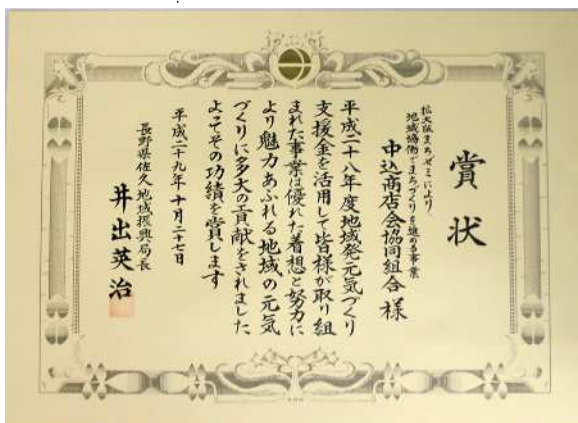 賞状
拡大版まちゼミにより
地域協働でまちづくりを進める事業
中込商店会協同組合様
平成二十八年度地域発元気づくり
支援金を活用して皆様が取り組
まれた事業は優れた着想と努力に
より魅力あふれる地域の元気
づくりに多大の貢献をされました
よってその功績を賞します
平成二十九年十月二十七日
長野県佐久地域振興局長
井出英治